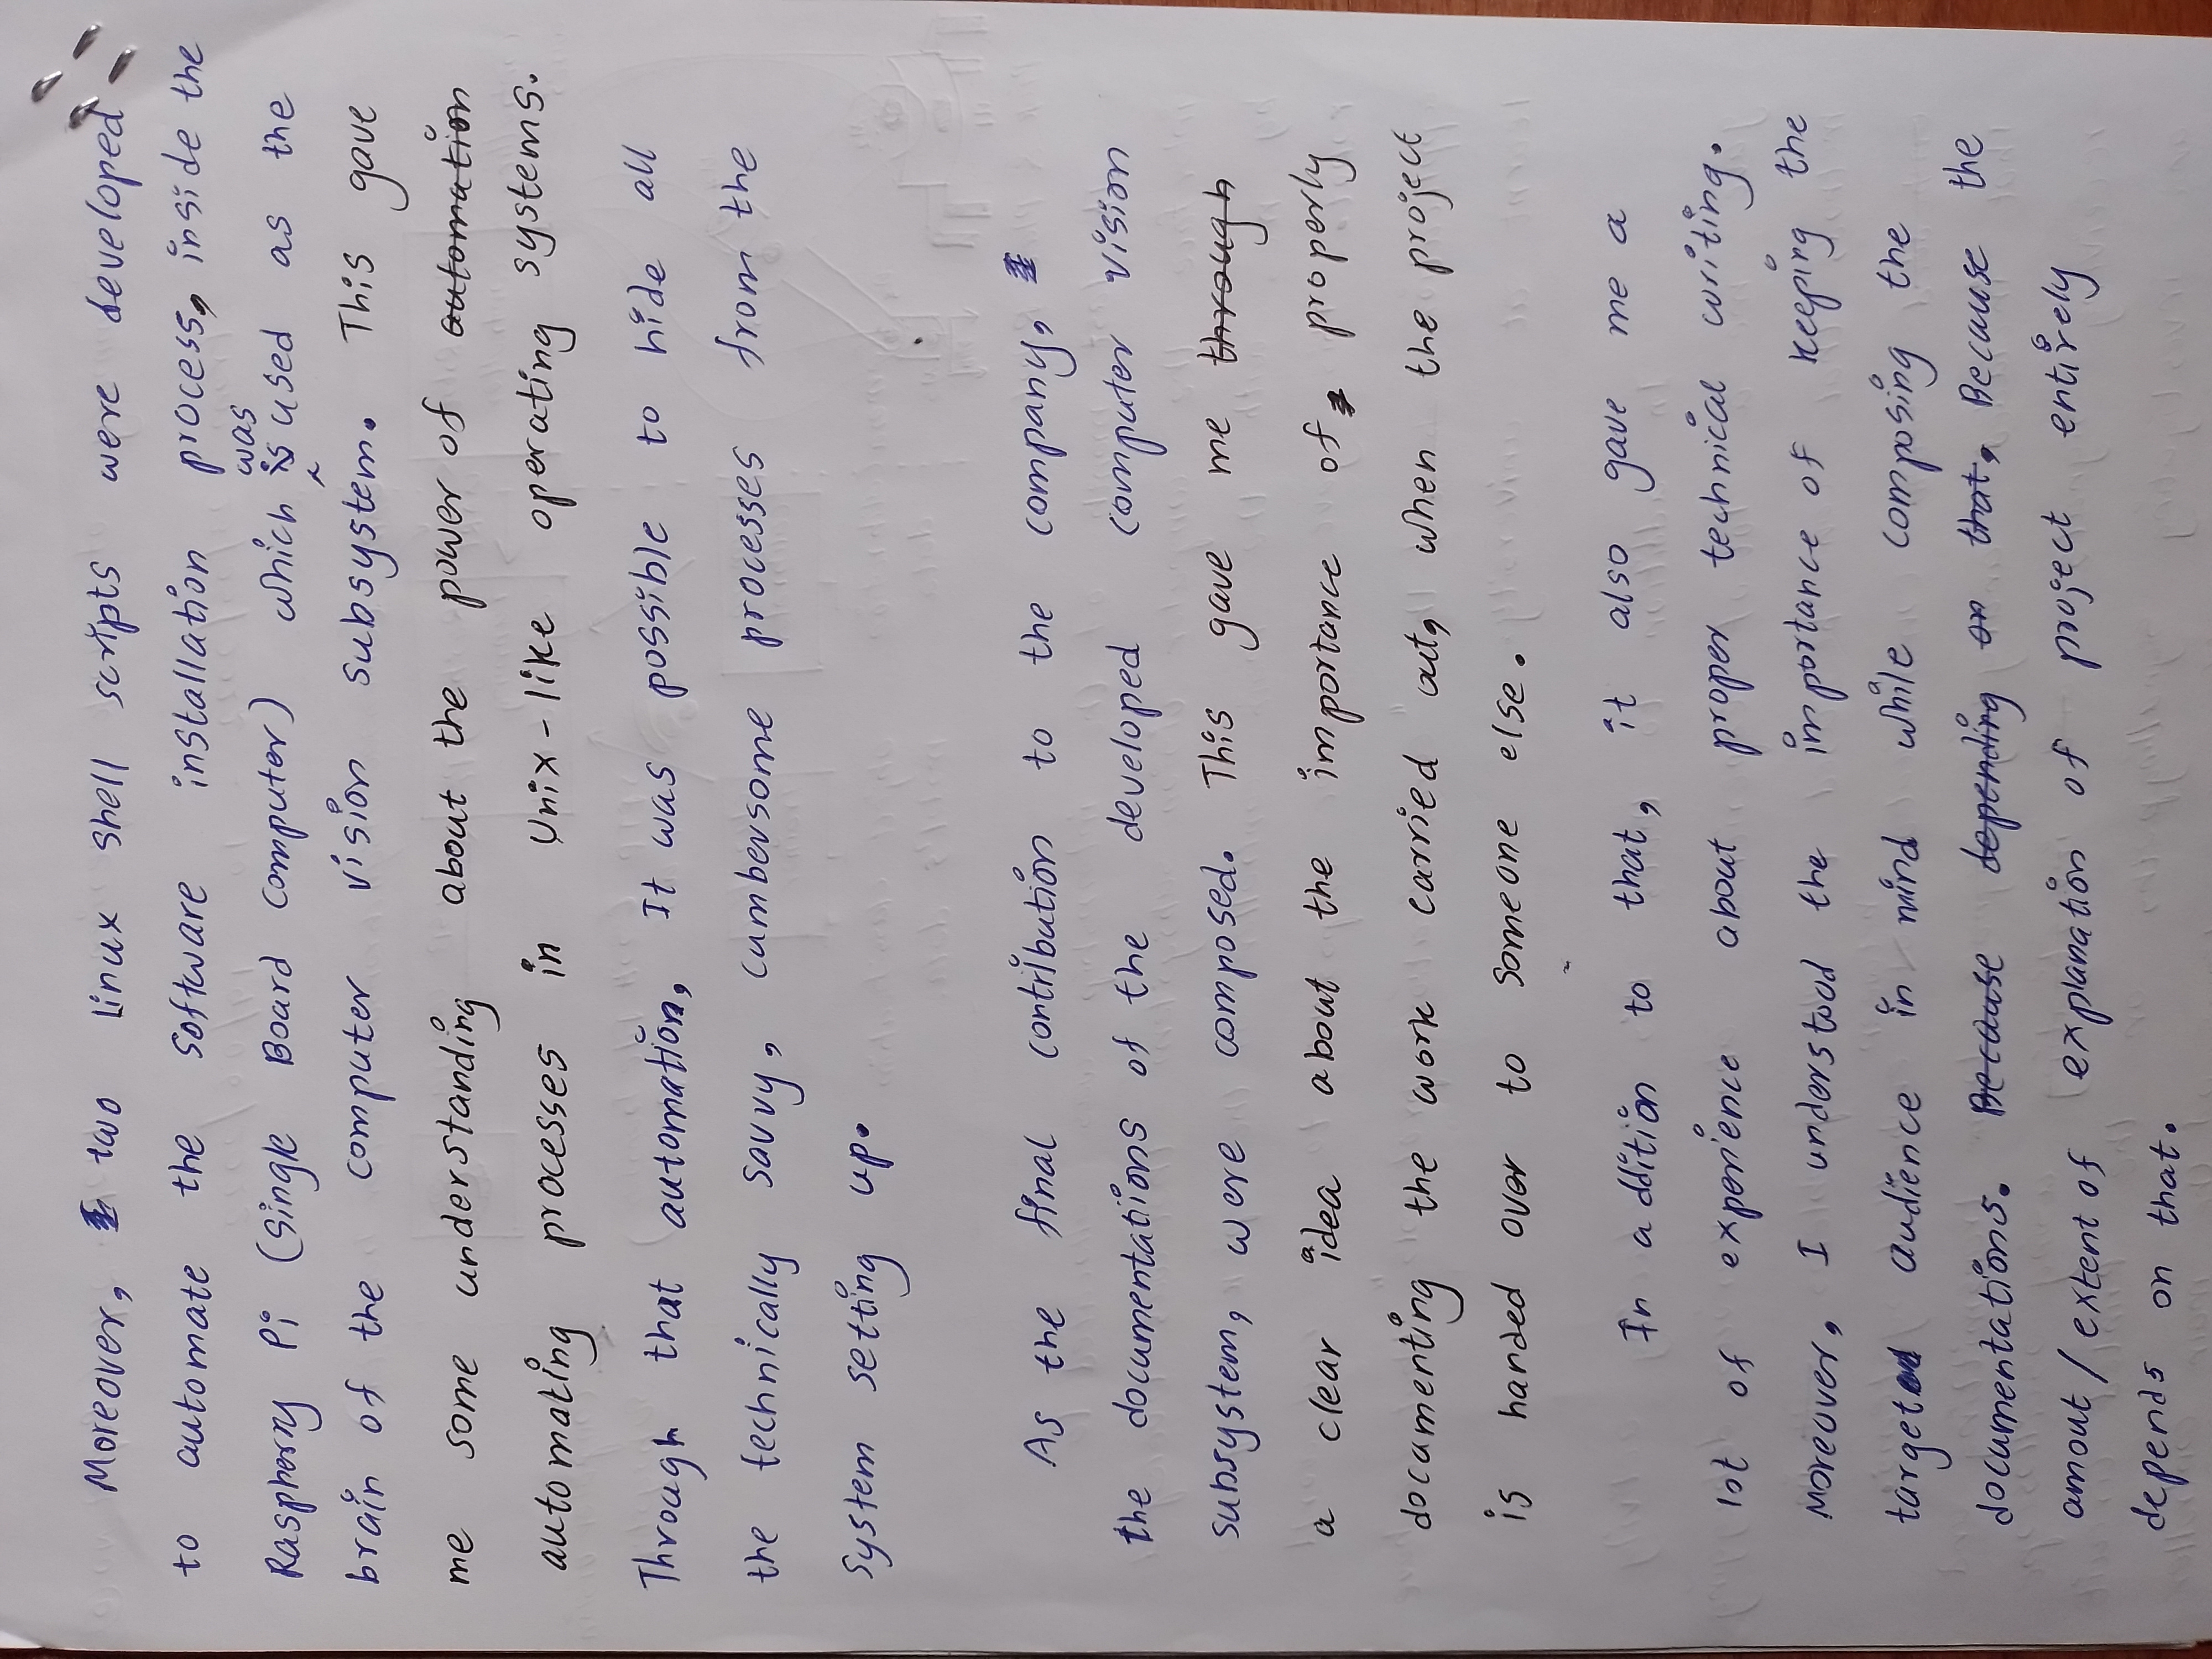 Moreover, two Linux shell scripts were developed
to automate the software installation process, inside the
was
Raspberry Pi (Single Board Computer) which is used as the
brain of the computer vision subsystem. This gave
me some understanding about the power of automation
automating processes in Unix-like operating systems.
Through that automation, It was possible to hide all
the technically savvy, cumbersome processes from the
system setting up.
As the final contribution to the company,
the documentations of the developed computer vision
subsystem, were composed. This gave me through
a clear idea about the importance of properly
documenting the work carried out, when the project
is handed over to someone else.
In addition to that, it also gave me a
lot of experience about proper technical writing.
Moreover, I understood the importance of keeping the
targeted audience in mind while composing the
documentations. Because depending on that, Because the
amout / extent of explanation of project entirely
depends on that.